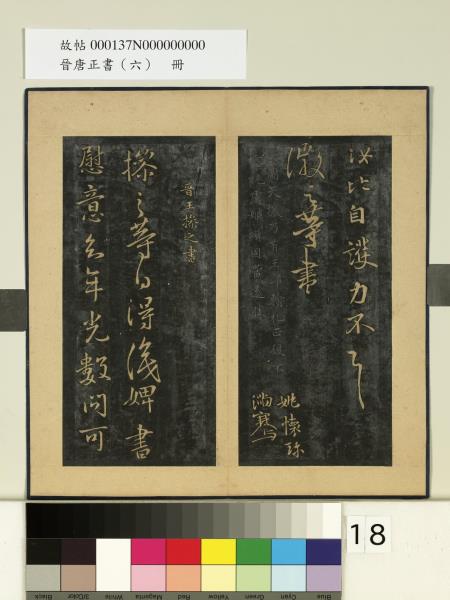 故帖 000137N000000000
晉唐正書（六） 冊
汝比自護力不
徽之等書
姚懷珍
滿騫
晉王操之書
操之等白得識婢書
慰意知年光數問可
18
Black
3/Color
White
Magenta
Red
Yellow
Green
Cyan
Blue